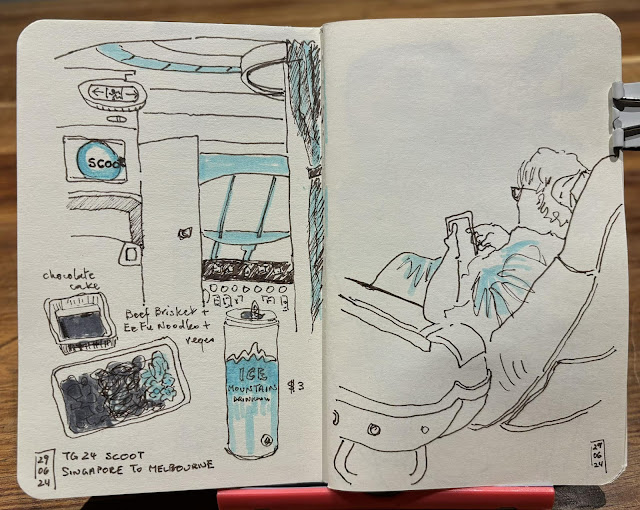 SCOO
chocolate
cake
Beef Brisket +
Ee Fu Noodles +
veges
ICE
MOUNTAIN
DRINKING
$3
29
06
24
TG 24 SCOOT
SINGAPORE TO MELBOURNE
29
06
24